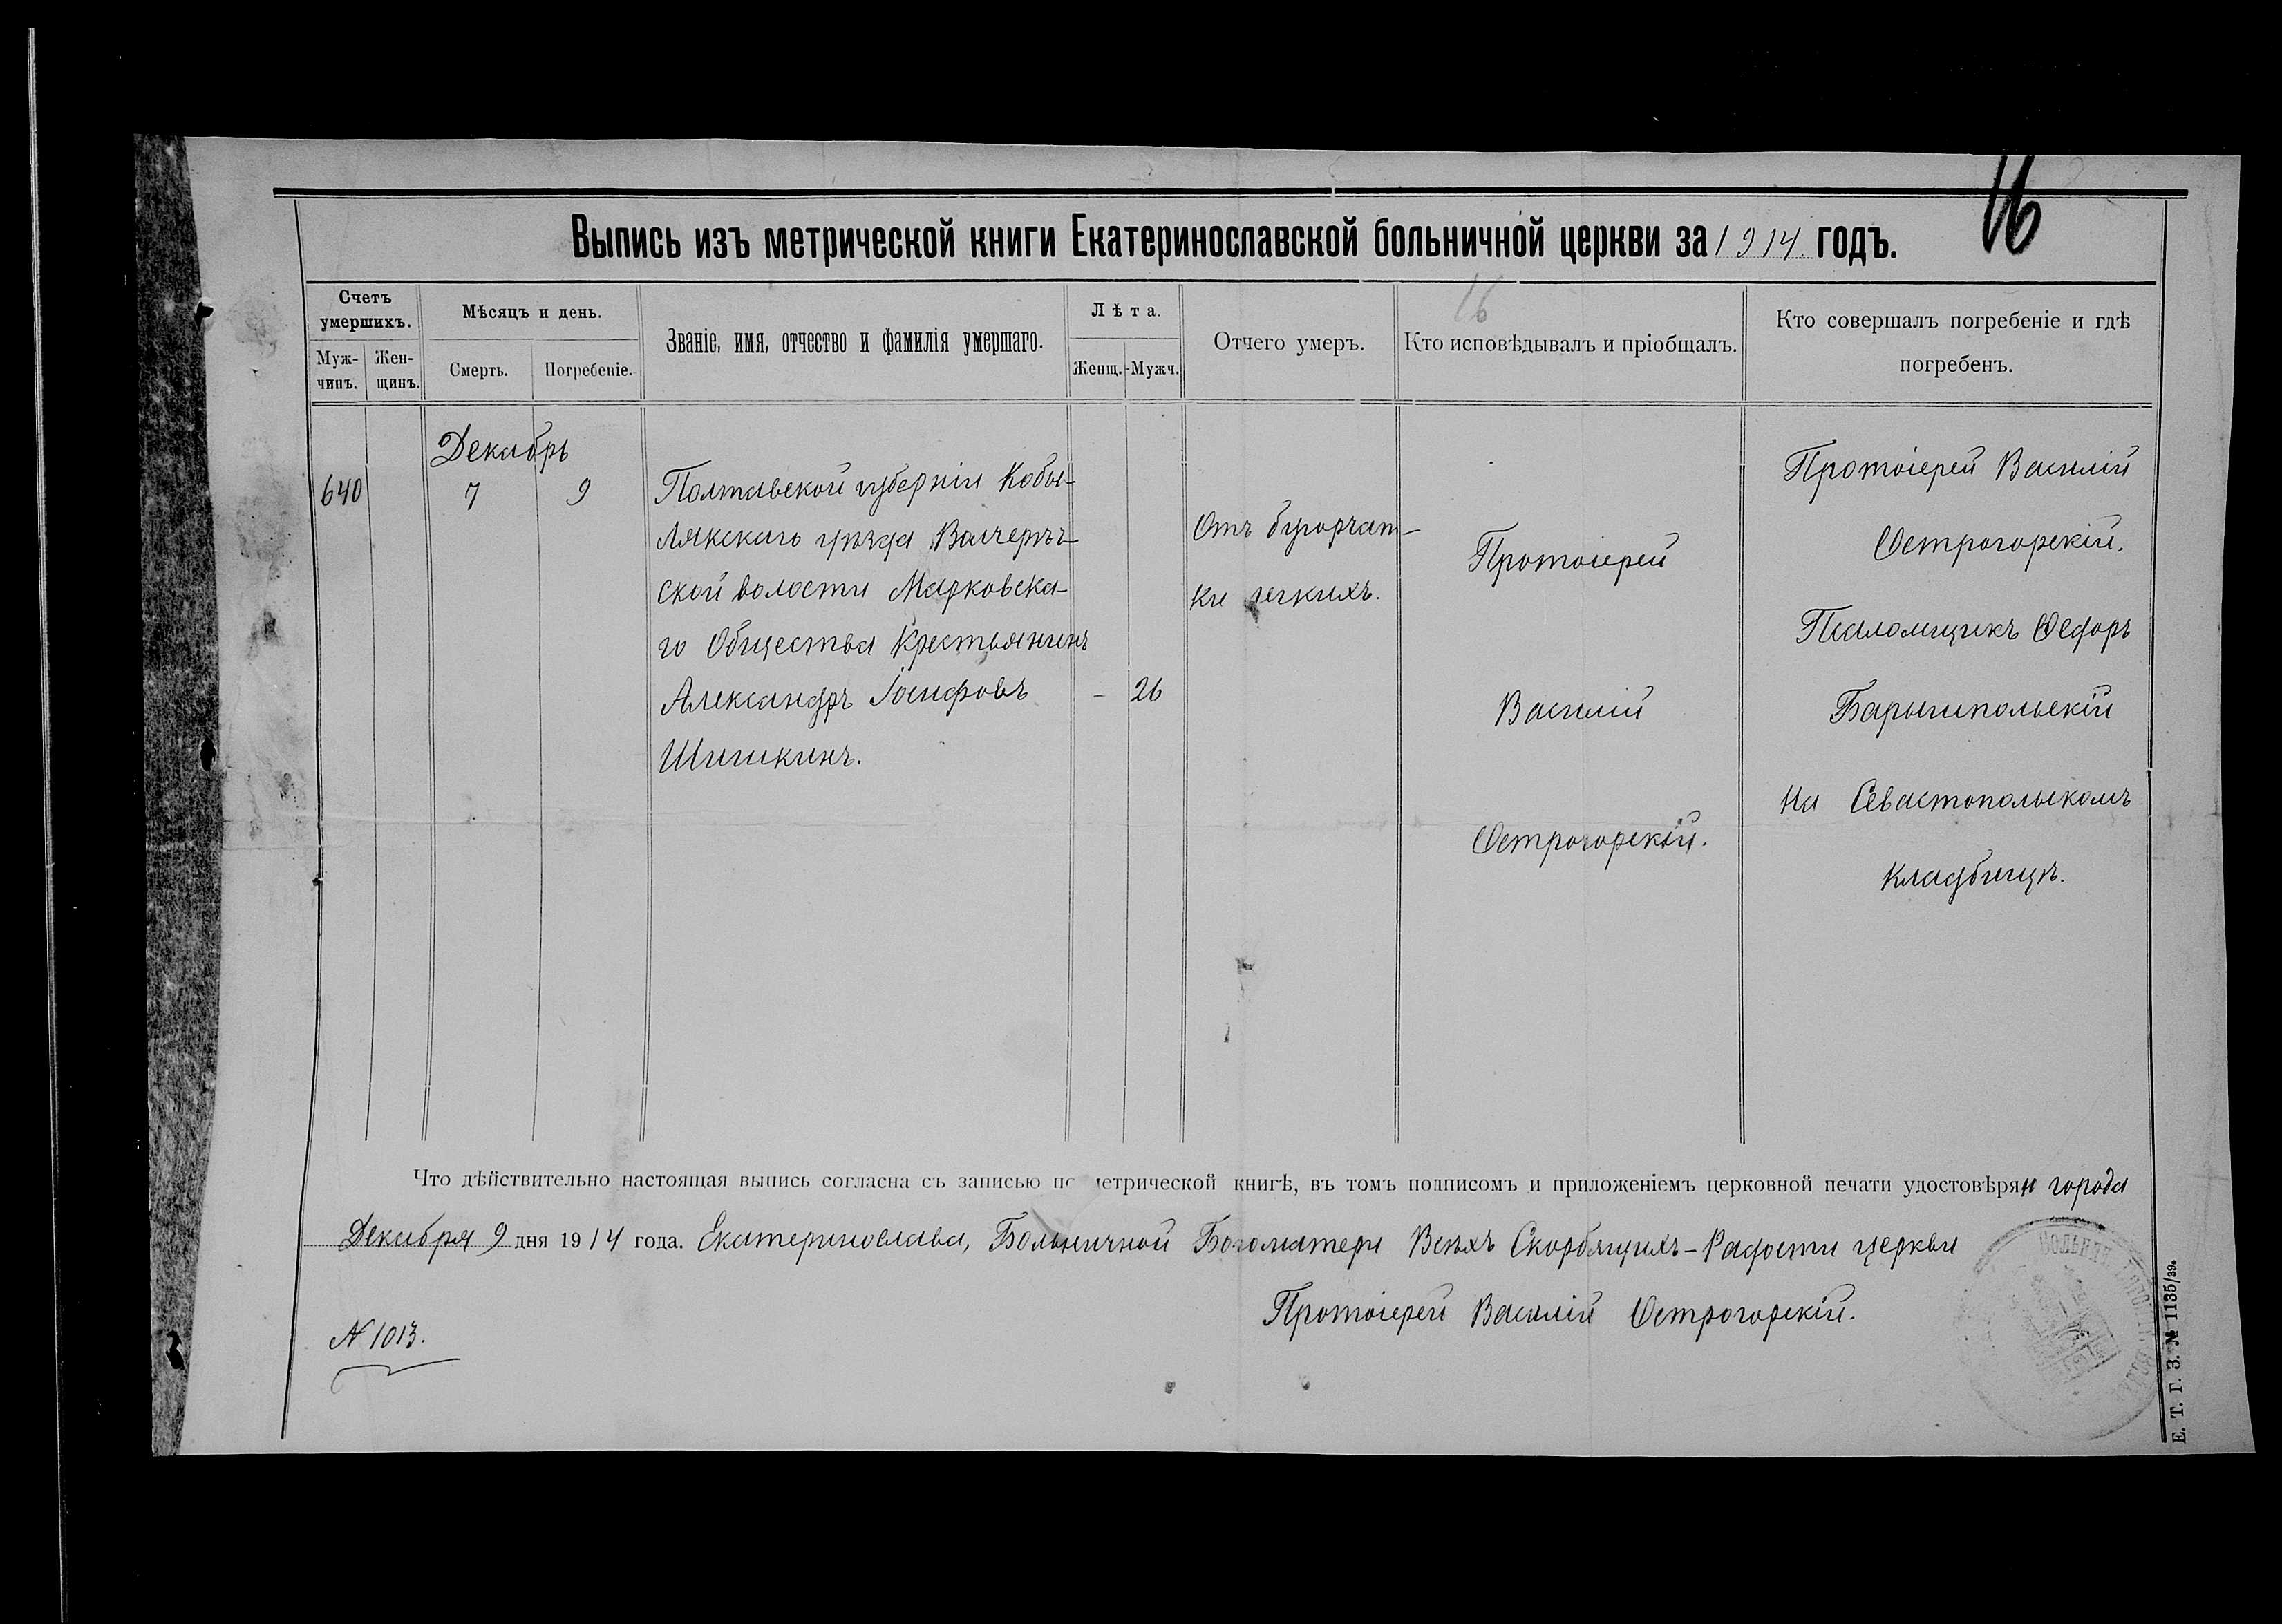 16
Выпись изъ метрической книги Екатеринославской больничной церкви за 1914. годъ.
16
Счетъ умершихъ.
Мѣсяцъ и день.
Званіе, имя, отчество и фамилія умершаго.
Лѣта.
Отчего умеръ.
Кто исповѣдывалъ и пріобщалъ.
Кто совершалъ погребеніе и гдѣ погребенъ.
Муж-чинъ.
Жен-щинъ.
Смерть.
Погребеніе.
Женщ.
Мужч.
640
Декабрь
7
9
Полтавской губерніи Кобы-
лякскаго уѣзда
ской волости Марковска-
го Общества Крестьянинъ
Александръ Іосифовъ
Шишкинъ.
-
26
Отъ бугорчат-
ки легкихъ.
Протоіерей
Василій
Острогорскій.
Протоіерей Василій
Острогорскій.
Псаломщикъ Ѳедоръ
Барышпольскій
На Севастопольскомъ
кладбищѣ.
Что дѣйствительно настоящая выпись согласна съ записью по метрической книгѣ, въ томъ подписомъ и приложеніемъ церковной печати удостовѣряю города
Декабря 9 дня 1914 года. Екатеринослава, Больничной Богоматери Всѣхъ Скорбящихъ-Радости церкви
Протоіерей Василій Острогорскій.
№ 1013.
Е. Т. Г. З. № 1135/39.